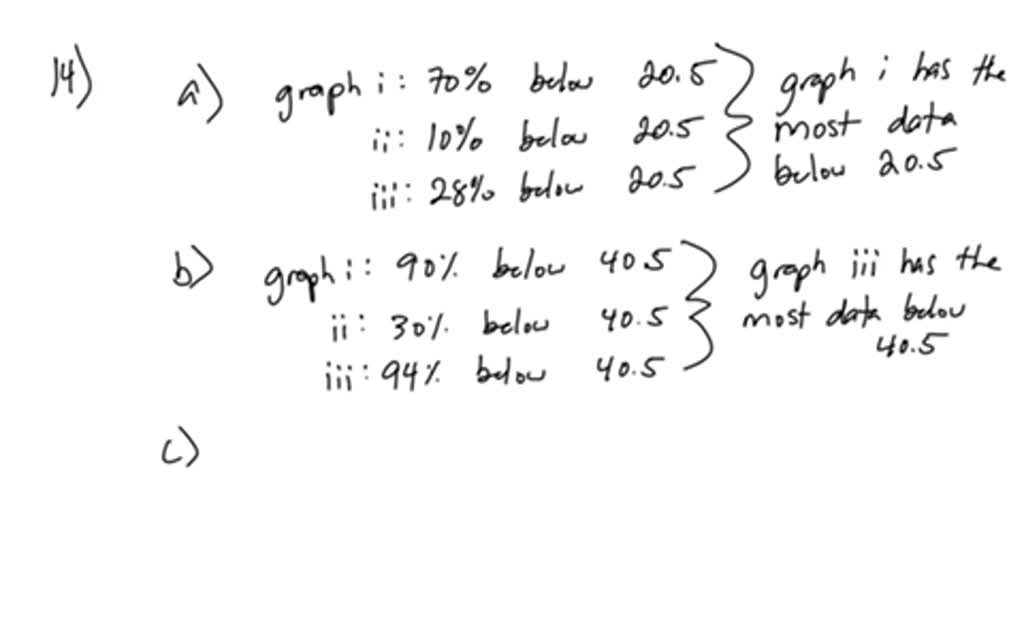 14) a) graph i : 70% below 20.5 } graph i has the
ii : 10% below 20.5 most data
iii : 28% below 20.5 below 20.5
b) graph i : 90% below 40.5 } graph iii has the
ii : 30% below 40.5 most data below
40.5
iii : 94% below 40.5
c)